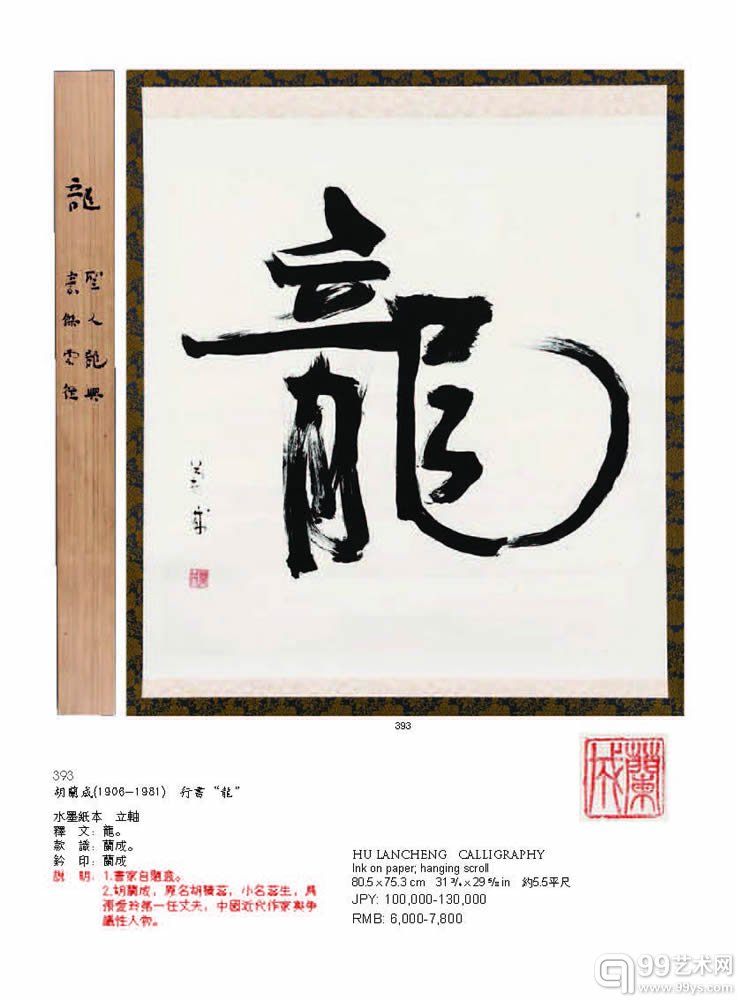 龍
聖人龍興
豪傑雲從
龍
蘭成
蘭成
393
蘭成
393
胡蘭成(1906—1981) 行書“龍”
水墨紙本 立軸
釋 文:龍。
款 識:蘭成。
鈐 印:蘭成
説 明:1.書家自題盒。
2.胡蘭成,原名胡積蕊,小名蕊生,爲
張愛玲第一任丈夫,中國近代作家與爭
議性人物。
HU LANCHENG CALLIGRAPHY
Ink on paper; hanging scroll
80.5 x 75.3 cm 31 3/4 x 29 5/8 in 約5.5平尺
JPY: 100,000-130,000
RMB: 6,000-7,800
99艺术网
www.99ys.com